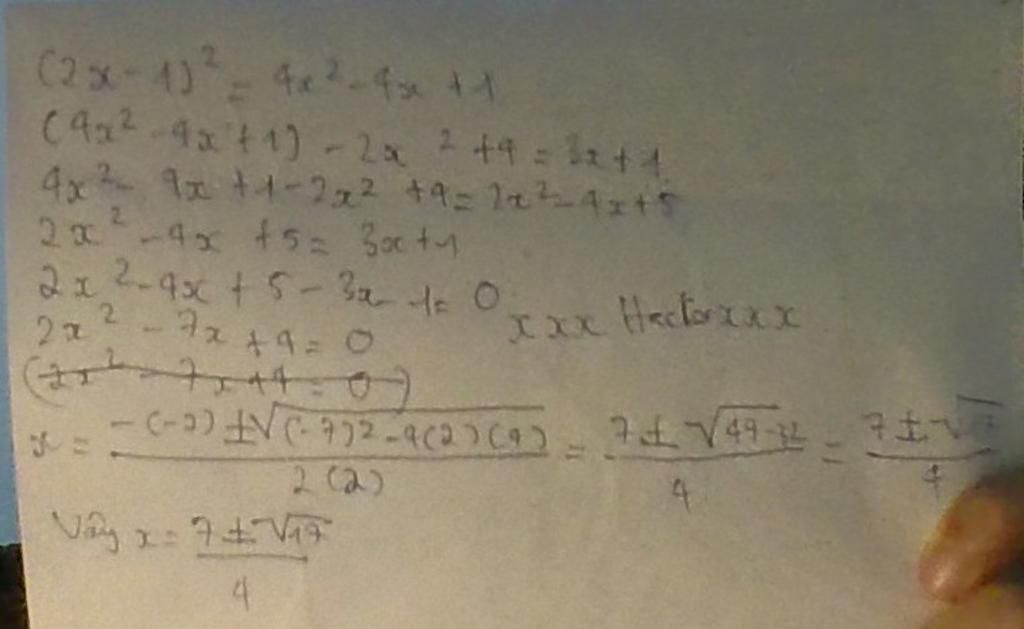 (2x - 1)² = 4x² - 4x + 1
(4x² - 4x + 1) - 2x² + 4 = 3x + 1
4x² - 4x + 1 - 2x² + 4 = 2x² - 4x + 5
2x² - 4x + 5 = 3x + 1
2x² - 4x + 5 - 3x - 1 = 0
xxx Hector xxx
2x² - 7x + 4 = 0
(2x² - 7x + 4 = 0)
x = \frac{-(-7) ± \sqrt{(-7)2 - 4(2)(4)}}{2(2)} = \frac{7 ± \sqrt{49-32}}{4} = \frac{7 ± √}{4}
Vậy x = \frac{7 ± \sqrt{17}}{4}